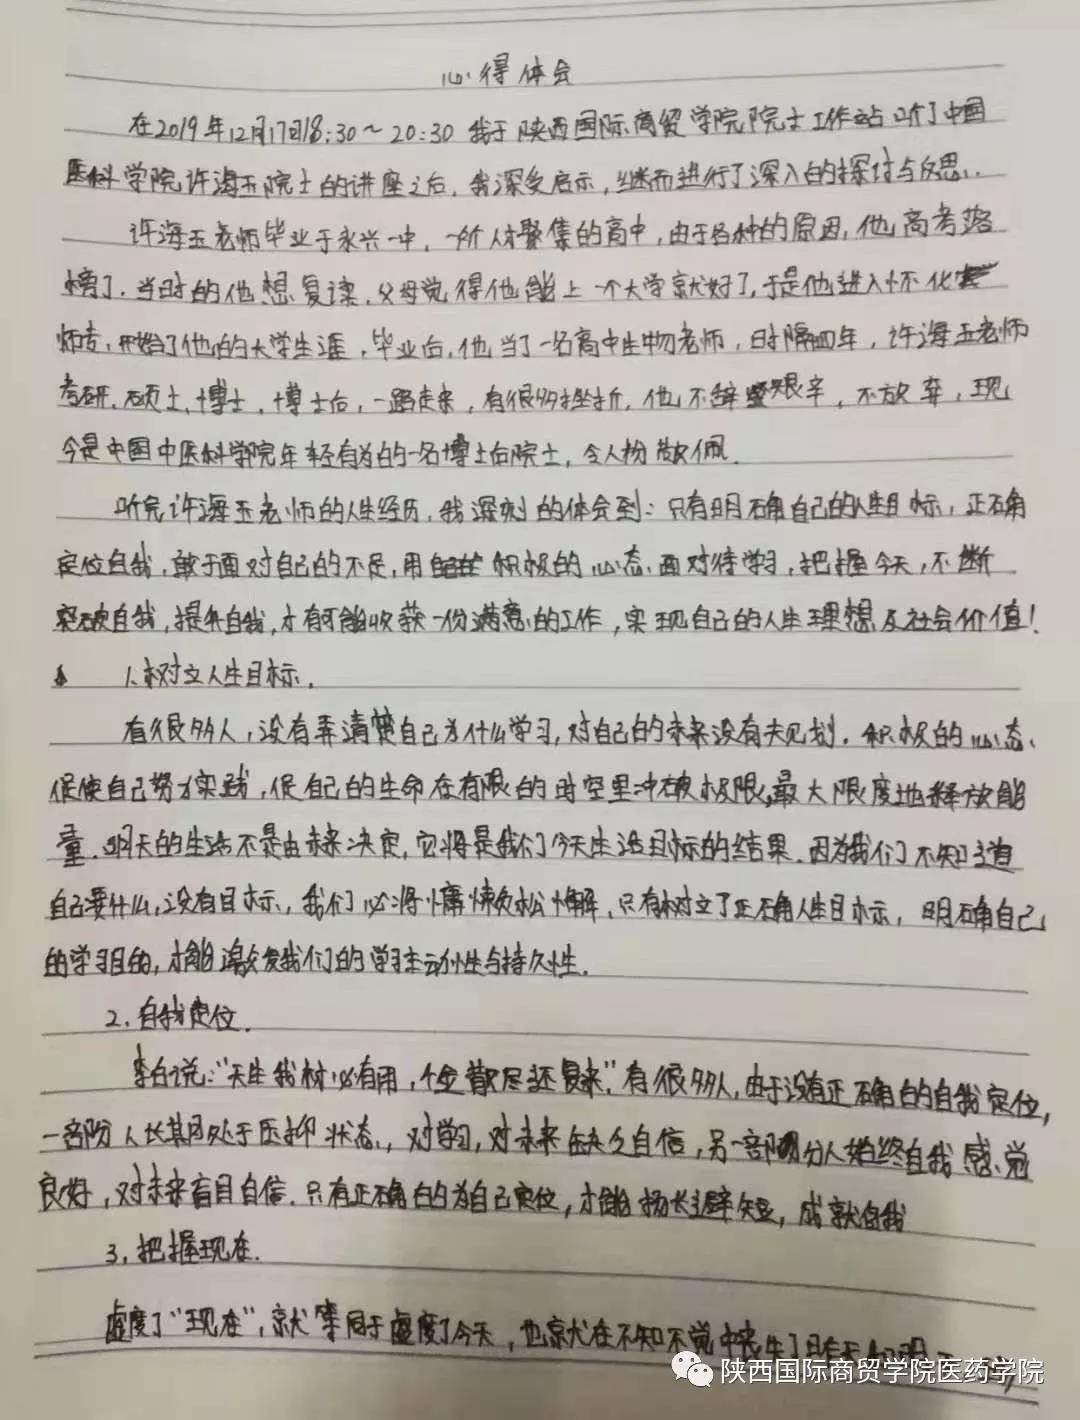 心得体会
在2019年12月17日18:30～20:30我于陕西国际商贸学院院士工作站听了中国
医科学院许海玉院士的讲座之后,我深受启示,继而进行了深入的探讨与反思.
许海玉老师毕业于永兴一中,一所人才聚集的高中,由于各种的原因,他高考落
榜了.当时的他想复读,父母觉得他能上一个大学就好了,于是他进入怀化
师专,开始了他的大学生涯,毕业后,他当了一名高中生物老师,时隔四年,许海玉老师
考研、硕士、博士、博士后,一路走来,有很多挫折,他不辞艰辛,不放弃,现
今是中国中医科学院年轻有为的一名博士后院士,令人敬佩.
听完许海玉老师的人生经历,我深刻的体会到:只有明确自己的人生目标,正确
定位自我,敢于面对自己的不足,用积极的心态面对待学习,把握今天,不断
突破自我,提升自我,才有可能收获一份满意的工作,实现自己的人生理想及社会价值!
1.树立人生目标.
有很多人,没有弄清楚自己为什么学习,对自己的未来没有规划.积极的心态、
促使自己努力实践,促自己的生命在有限的时空里冲破极限,最大限度地释放能
量.明天的生活不是由未来决定,它将是我们今天生活目标的结果.因为我们不知道
自己要什么,没有目标,我们必将慵懒松懈,只有树立了正确人生目标,明确自己
的学习目的,才能激发我们的学习主动性与持久性.
2.自我定位.
李白说:“天生我材必有用,千金散尽还复来”.有很多人,由于没有正确的自我定位,
一部分人长期处于压抑状态,对学习,对未来缺乏自信,另一部分人始终自我感觉
良好,对未来盲目自信.只有正确的为自己定位,才能扬长避短,成就自我
3.把握现在.
虚度了“现在”,就等同于虚度了今天,也就在不知不觉中丧失了昨天和明
陕西国际商贸学院医药学院